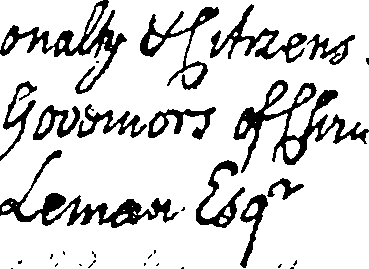 onalty & Citizens
Governors of Chri
Leman Esqr